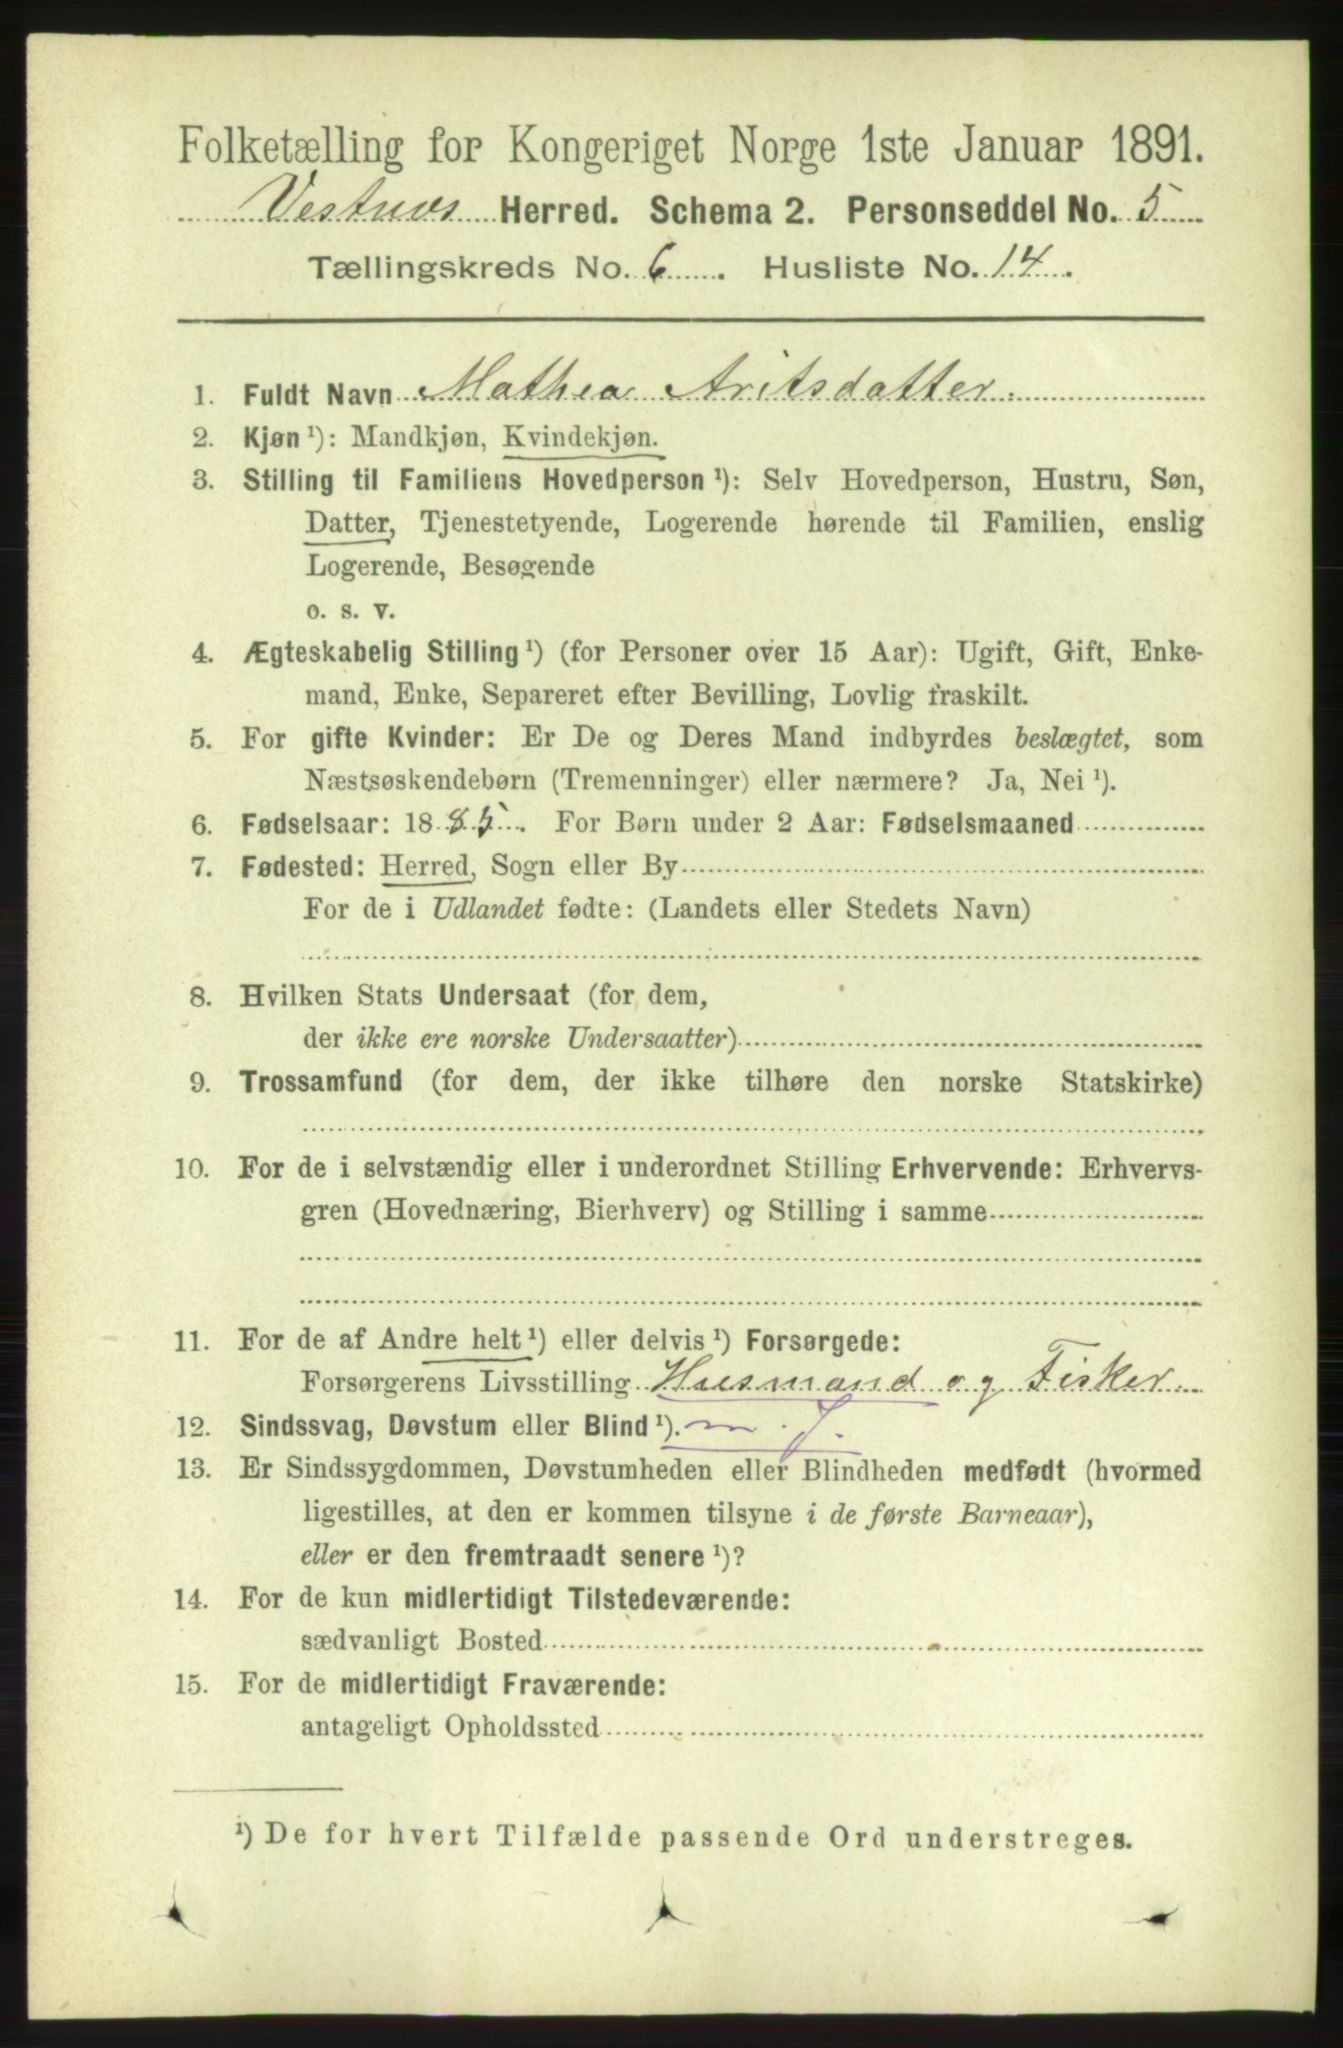 Folketælling for Kongeriget Norge 1ste Januar 1891.
Vestnes Herred. Schema 2. Personseddel No. 5
Tællingskreds No. 6. Husliste No. 14.
1. Fuldt Navn Mathea Aritsdatter.
2. Kjøn ¹): Mandkjøn, Kvindekjøn.
3. Stilling til Familiens Hovedperson ¹): Selv Hovedperson, Hustru, Søn,
Datter, Tjenestetyende, Logerende hørende til Familien, enslig
Logerende, Besøgende
o. s. v.
4. Ægteskabelig Stilling ¹) (for Personer over 15 Aar): Ugift, Gift, Enke-
mand, Enke, Separeret efter Bevilling, Lovlig fraskilt.
5. For gifte Kvinder: Er De og Deres Mand indbyrdes beslægtet, som
Næstsøskendebørn (Tremenninger) eller nærmere? Ja, Nei ¹).
6. Fødselsaar: 1885. For Børn under 2 Aar: Fødselsmaaned
7. Fødested: Herred, Sogn eller By
For de i Udlandet fødte: (Landets eller Stedets Navn)
8. Hvilken Stats Undersaat (for dem,
der ikke ere norske Undersaatter)
9. Trossamfund (for dem, der ikke tilhøre den norske Statskirke)
10. For de i selvstændig eller i underordnet Stilling Erhvervende: Erhvervs-
gren (Hovednæring, Bierhverv) og Stilling i samme
11. For de af Andre helt ¹) eller delvis ¹) Forsørgede:
Forsørgerens Livsstilling Husmand og Fisker
12. Sindssvag, Døvstum eller Blind ¹). m. J.
13. Er Sindssygdommen, Døvstumheden eller Blindheden medfødt (hvormed
ligestilles, at den er kommen tilsyne i de første Barneaar),
eller er den fremtraadt senere ¹)?
14. For de kun midlertidigt Tilstedeværende:
sædvanligt Bosted
15. For de midlertidigt Fraværende:
antageligt Opholdssted
¹) De for hvert Tilfælde passende Ord understreges.